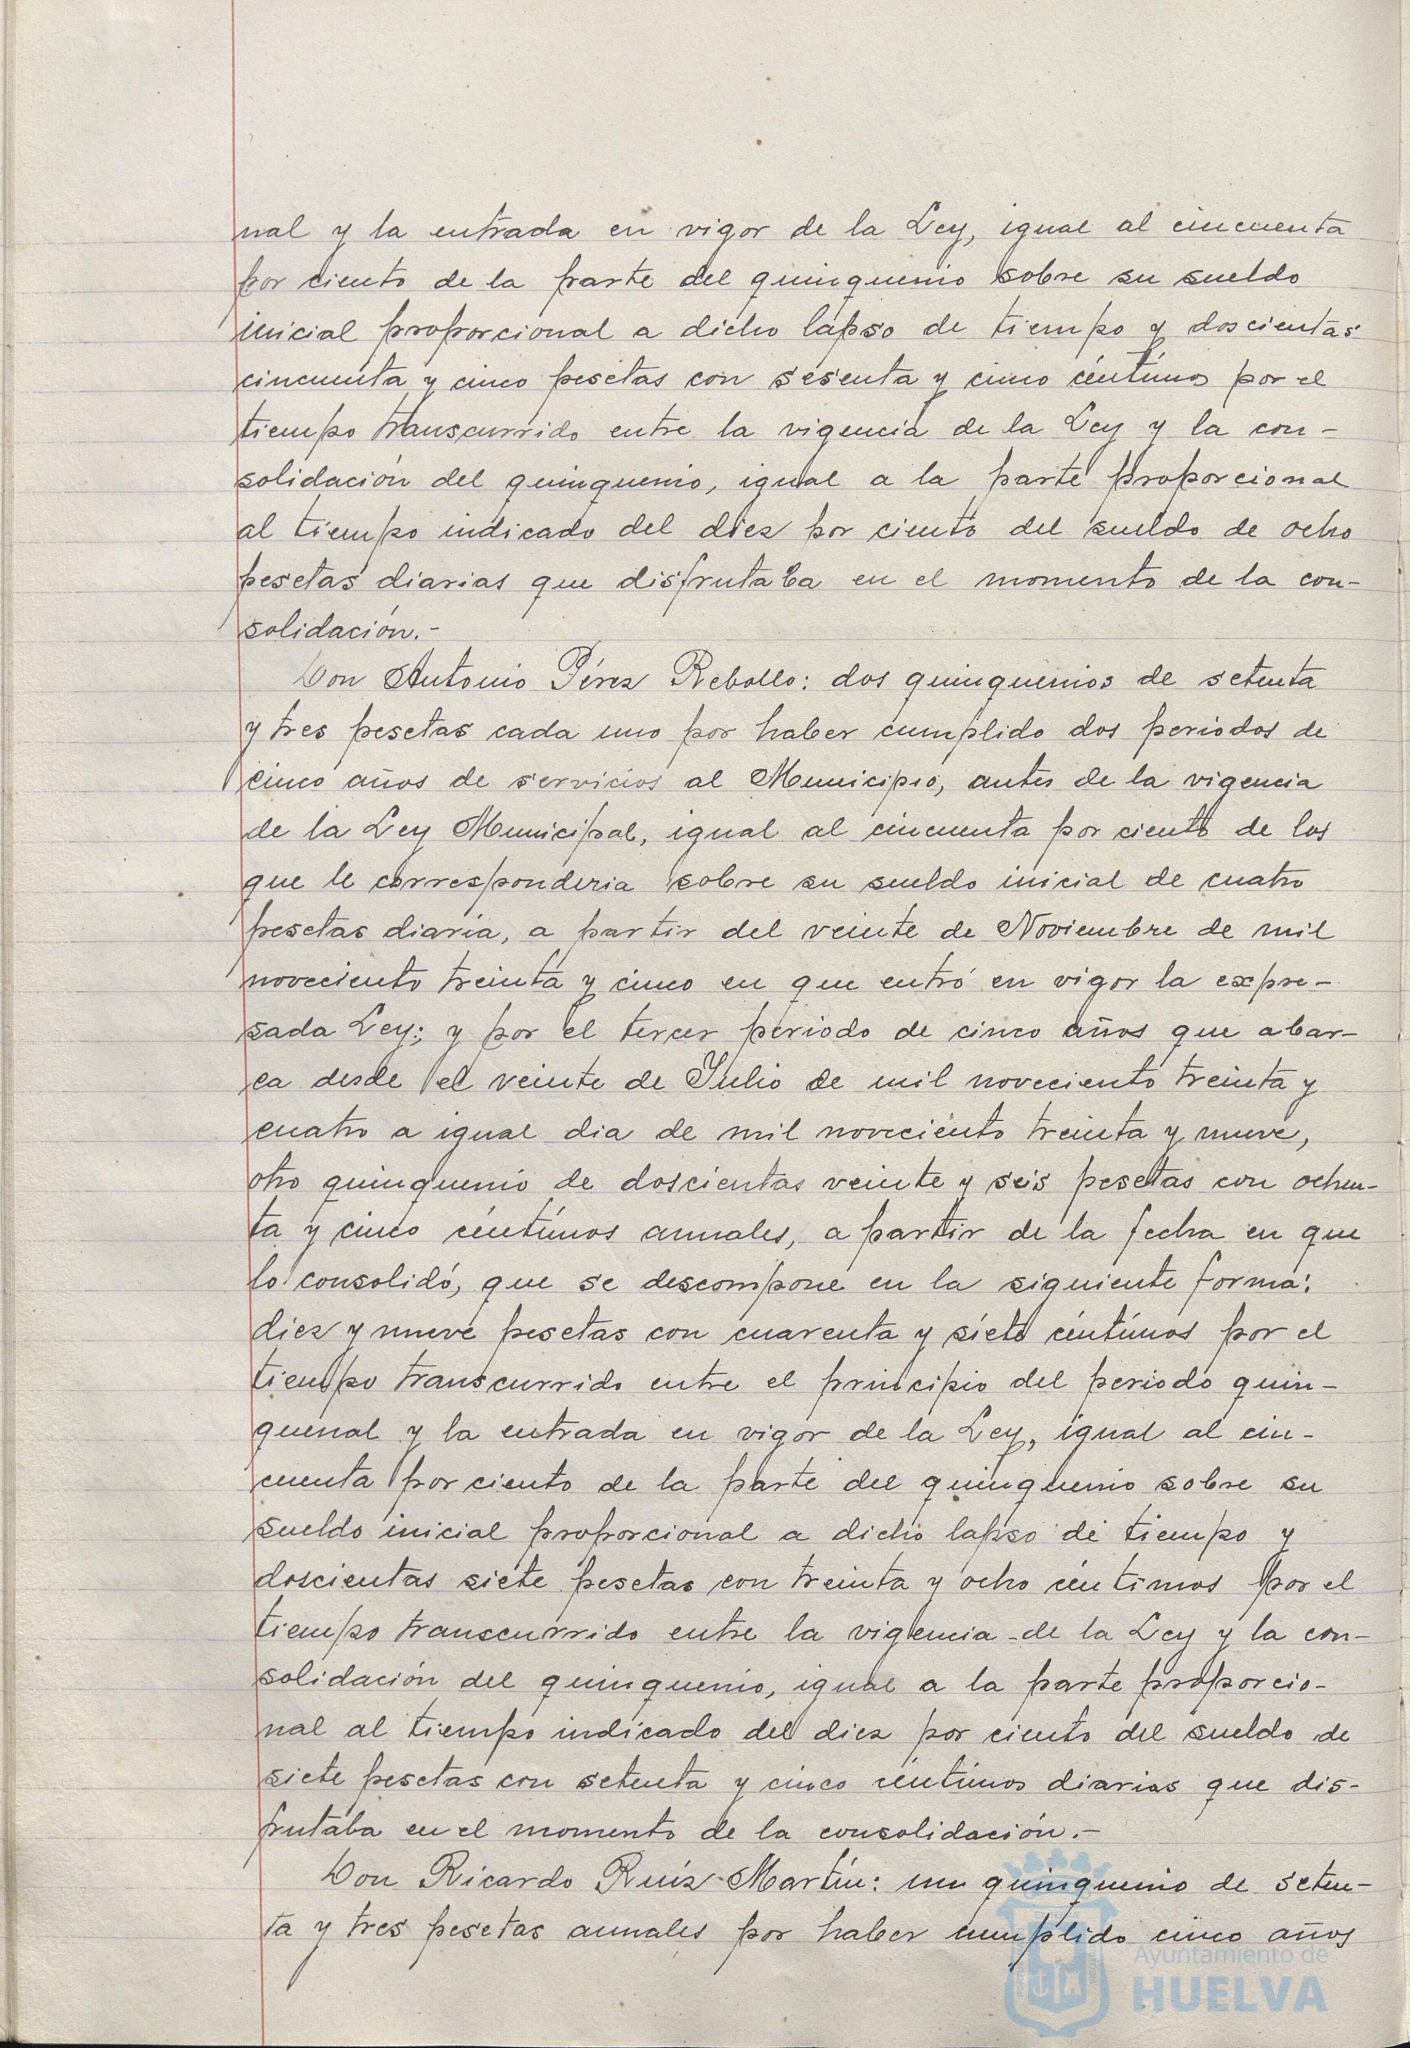 nal y la entrada en vigor de la Ley, igual al cincuenta
por ciento de la parte del quinquenio sobre su sueldo
inicial proporcional a dicho lapso de tiempo y doscientas
cincuenta y cinco pesetas con sesenta y cinco céntimos por el
tiempo transcurrido entre la vigencia de la Ley y la con-
solidación del quinquenio, igual a la parte proporcional
al tiempo indicado del diez por ciento del sueldo de ocho
pesetas diarias que disfrutaba en el momento de la con-
solidación.-
Don Antonio Pérez Rebollo: dos quinquenios de setenta
y tres pesetas cada uno por haber cumplido dos periodos de
cinco años de servicios al Municipio, antes de la vigencia
de la Ley Municipal, igual al cincuenta por ciento de los
que le corresponderia sobre su sueldo inicial de cuatro
pesetas diaria, a partir del veinte de Noviembre de mil
noveciento treinta y cinco en que entró en vigor la expre-
sada Ley; y por el tercer periodo de cinco años que abar-
ca desde el veinte de Julio de mil noveciento treinta y
cuatro a igual dia de mil noveciento treinta y nueve,
otro quinquenio de doscientas veinte y seis pesetas con ochen-
ta y cinco céntimos anuales, a partir de la fecha en que
lo consolidó, que se descompone en la siguiente forma:
diez y nueve pesetas con cuarenta y siete céntimos por el
tiempo transcurrido entre el principio del periodo quin-
quenal y la entrada en vigor de la Ley, igual al cin-
cuenta por ciento de la parte del quinquenio sobre su
sueldo inicial proporcional a dicho lapso de tiempo y
doscientas siete pesetas con treinta y ocho céntimos por el
tiempo transcurrido entre la vigencia de la Ley y la con-
solidación del quinquenio, igual a la parte proporcio-
nal al tiempo indicado del diez por ciento del sueldo de
siete pesetas con setenta y cinco céntimos diarias que dis-
frutaba en el momento de la consolidación.-
Don Ricardo Ruiz Martín: un quinquenio de seten-
ta y tres pesetas anuales por haber cumplido cinco años
Ayuntamiento de
HUELVA